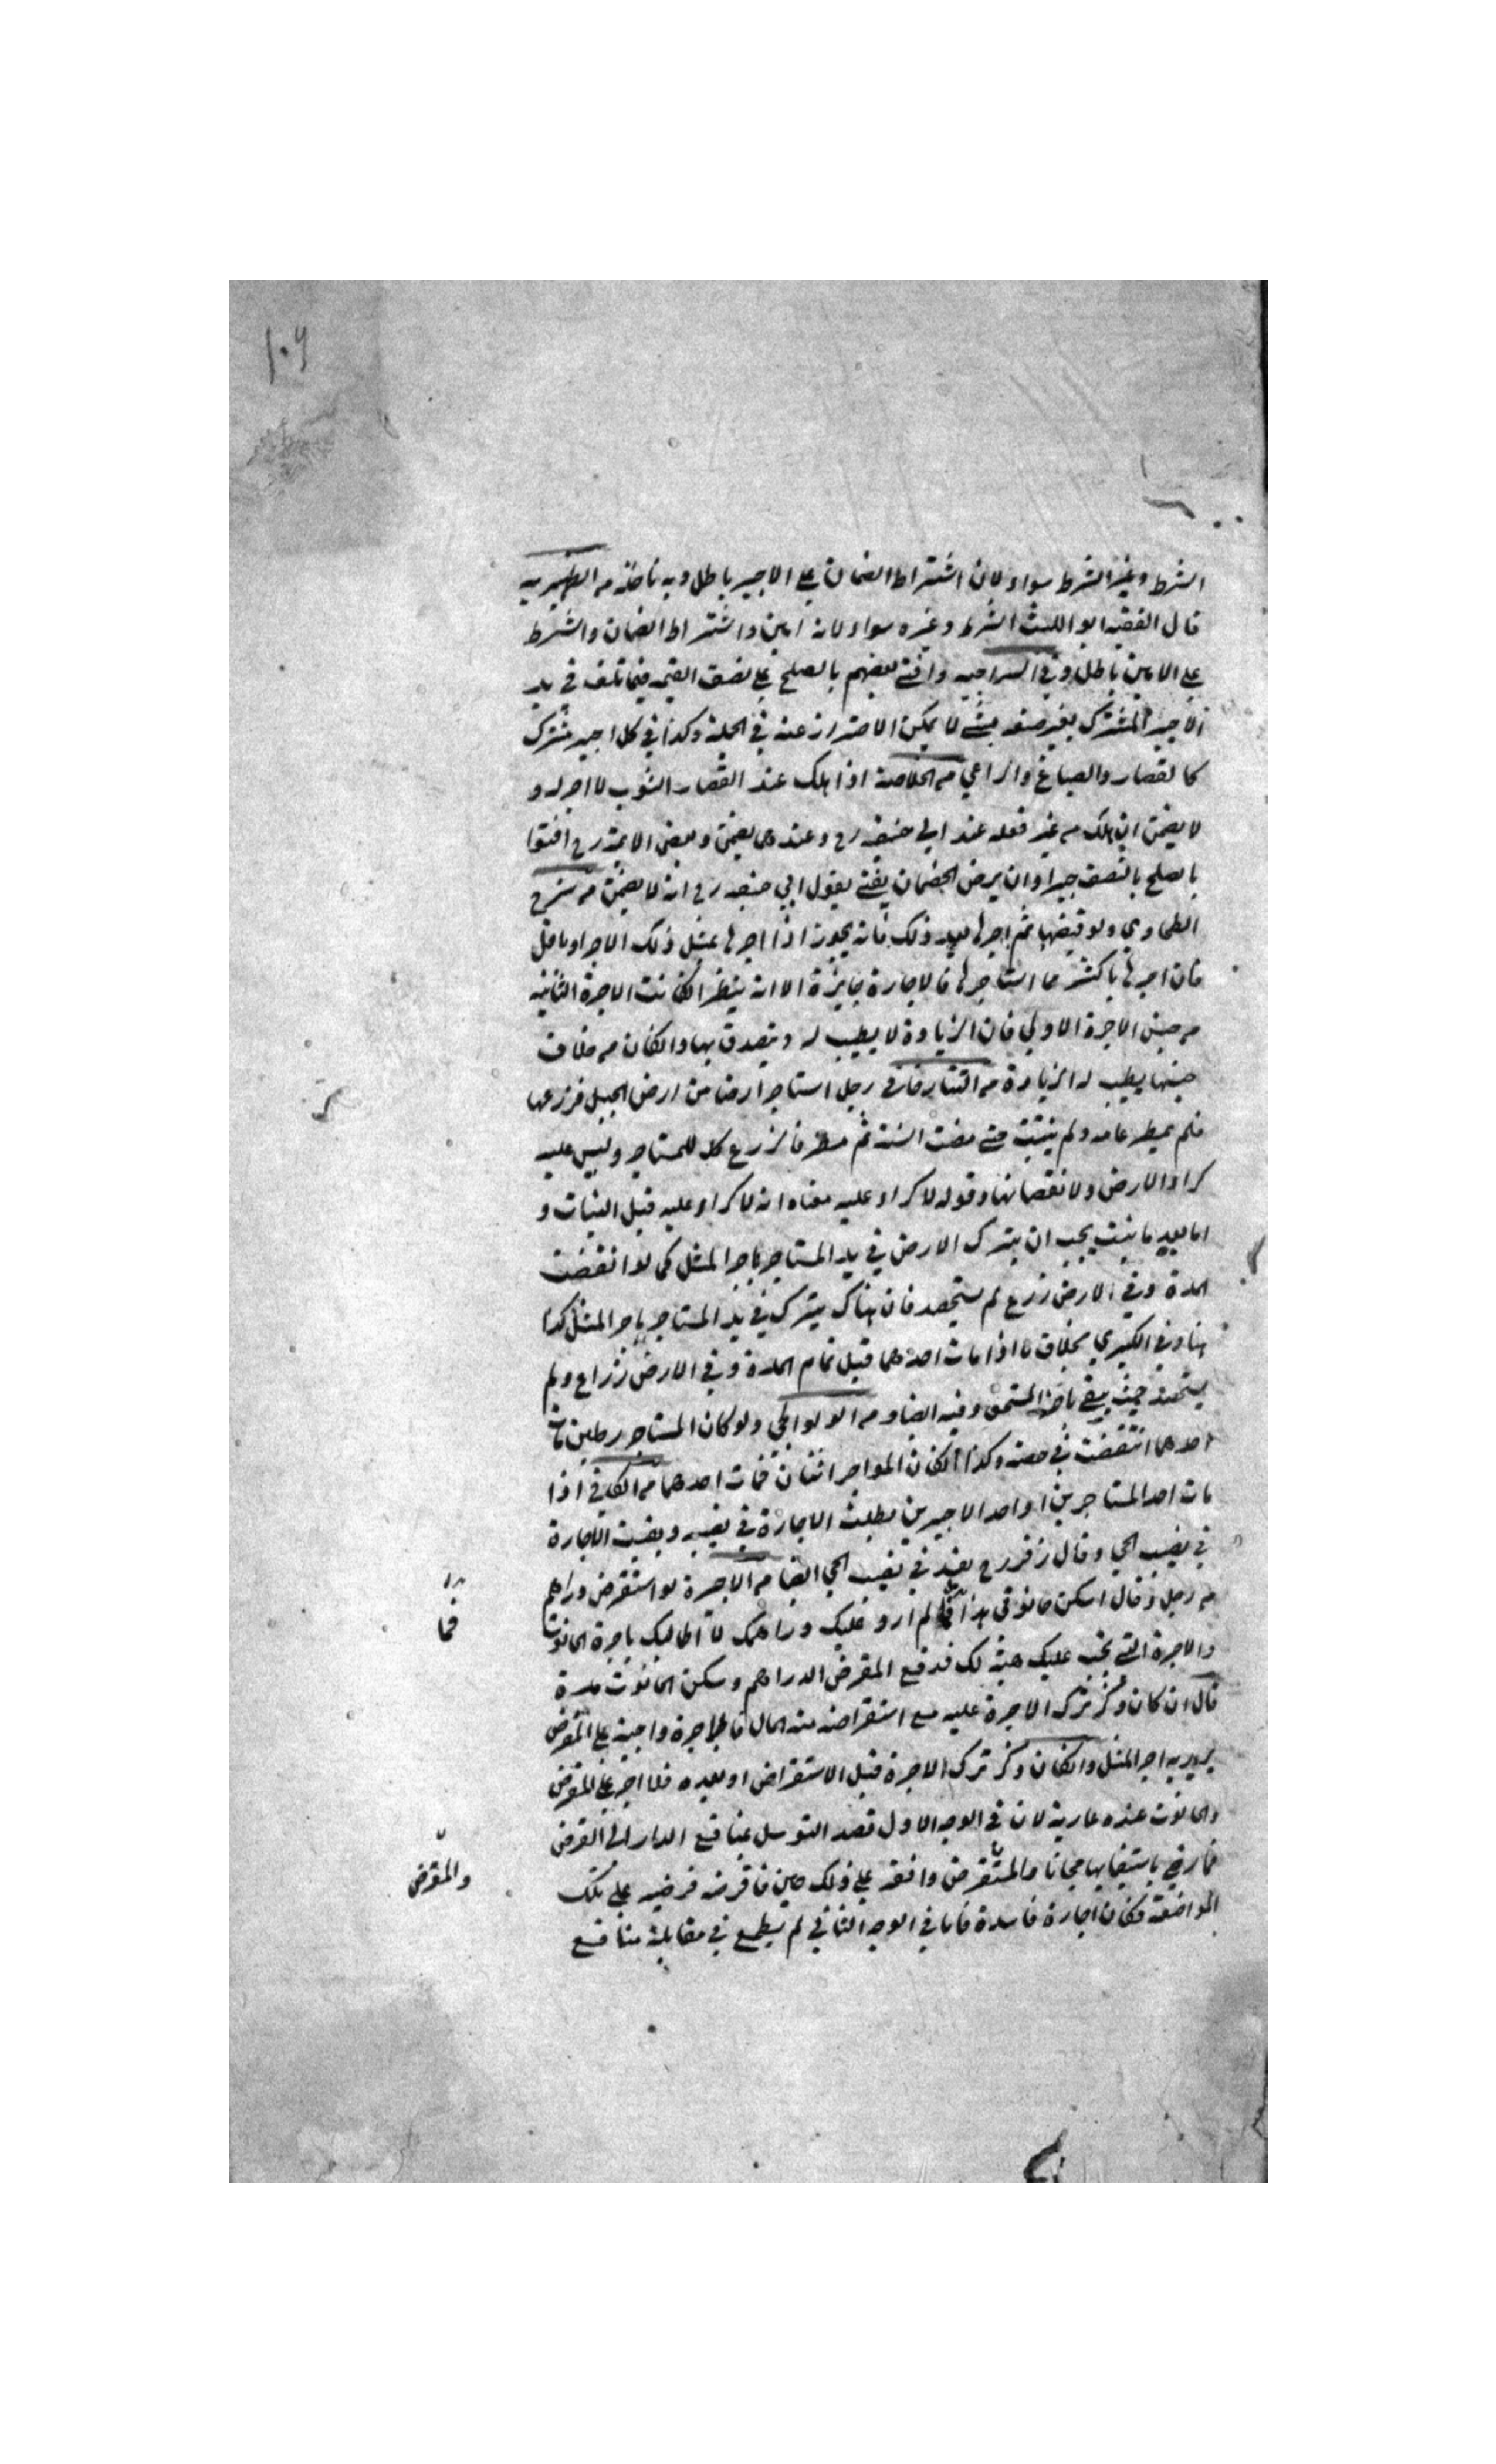 ١٠٦
الشرط وغير الشرط سواء لان اشتراط الضمان على الاجير باطل وبه ناخذ من الظهيرية
قال الفقيه ابو الليث الشرط وغيره سواء لانه امين واشتراط الضمان والشرط
على الامين باطل وفي السراجيه وافتى بعضهم بالصلح على نصف القيمه فيما تلف في يد
الاجير المشترك بغير صنعه بشئ لا يمكن الاحتراز عنه في الجملة وكذا في كل اجير مشترك
كالقصار والصباغ والراعي من الخلاصة اذا هلك عند القصار الثوب لا اجر له و
لا يضمن ان هلك من غير فعله عند ابي حنيفه رح وعندهما يضمن وبعض الايمة رح افتوا
بالصلح بالنصف جبرا وان لم يرض الخصمان يفتى بقول ابي حنيفه رح انه لا يضمن من شرح
الطحاوي ولو قبضها ثم اجرها بعد ذلك فانه يجوز اذا اجرها بمثل ذلك الاجر او باقل
فان اجرها باكثر مما استاجرها فالاجارة جايزة الا انه ينظر انكانت الاجرة الثانيه
من جنس الاجرة الاولي فان الزيادة لا يطيب له ويتصدق بها وانكان من خلاف
جنسها يطيب له الزيادة من التتارخاني رجل استاجر ارضا من ارض الجبل فزرعها
فلم يمطر عامه ولم ينبت حتى مضت السنة ثم مطر فالزرع كله للمستاجر وليس عليه
كراء الارض ولا نقصانها وقوله لا كراء عليه معناه انه لا كراء عليه قبل النبات و
اما بعد ما نبت يجب ان يترك الارض في يد المستاجر باجر المثل كما لو انقضت
المدة وفي الارض زرع لم يستحصد فان هناك يترك في يد المستاجر باجر المثل كذا
هنا وفي الكبري بخلاف ما اذا مات احدهما قبل تمام المدة وفي الارض زراع ولم
يستحصد حيث يبقى باجر المستمى وفيه ايضا ومن الولوالجي ولو كان المستاجر رجلين فمات
احدهما انتقضت في حصته وكذا انكان المواجر اثنان فمات احدهما من الكافي اذا
مات احد المستاجرين او احد الاجيرين بطلت الاجارة في نصيبه وبقيت الاجارة
في نصيب الحي وقال زفر رح يفسد في نصيب الحي ايضا من الاجيرة لو استقرض دراهم
من رجل وقال اسكن حانوتي هذا فما لم ارد عليك دراهمك لا اطالبك باجرة الحانوت
والاجرة التي تجب عليك هبة لك فدفع المقرض الدراهم وسكن الحانوت مدة
قال ان كان ذكر ترك الاجرة عليه مع استقراضه منه المال فالاجرة واجبة على المقرض
يريد به اجر المثل وانكان ذكر ترك الاجرة قبل الاستقراض او بعده فلا اجر على المقرض
والحانوت عنده عارية لان في الوجه الاول قصد التوسل بمنافع الدار الى القرض
فما رضي باستيفايها مجانا والمستقرض وافقه على ذلك حين فاقرضه فرضيه على تلك
المواضعة فكان اجارة فاسدة فاما في الوجه الثاني لم يطمع في مقابلة منافع
فما
والمقرض